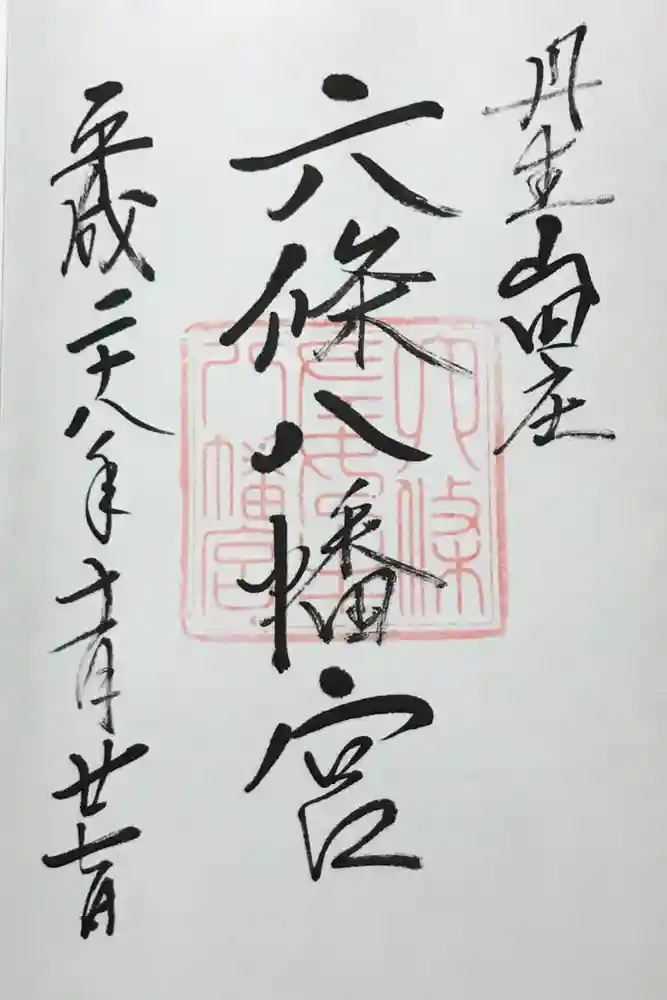 丹生山田庄
六條八幡宮
平成二十八年十一月廿七日
六條
八幡宮